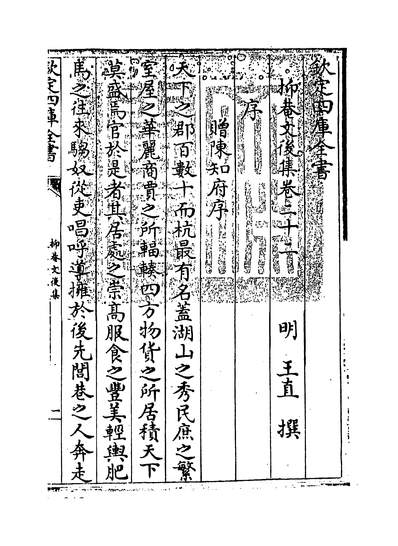 欽定四庫全書
抑菴文後集卷二十二
明 王直 撰
序
贈陳知府序
天下之郡百數十而杭最有名蓋湖山之秀民庶之繁
室屋之華麗商賈之所輻輳四方物貨之所居積天下
莫盛焉官於是者其居處之崇高服食之豐美輕輿肥
馬之往來騶奴從吏唱呼導擁於後先閭巷之人奔走
欽定四庫全書
抑菴文後集